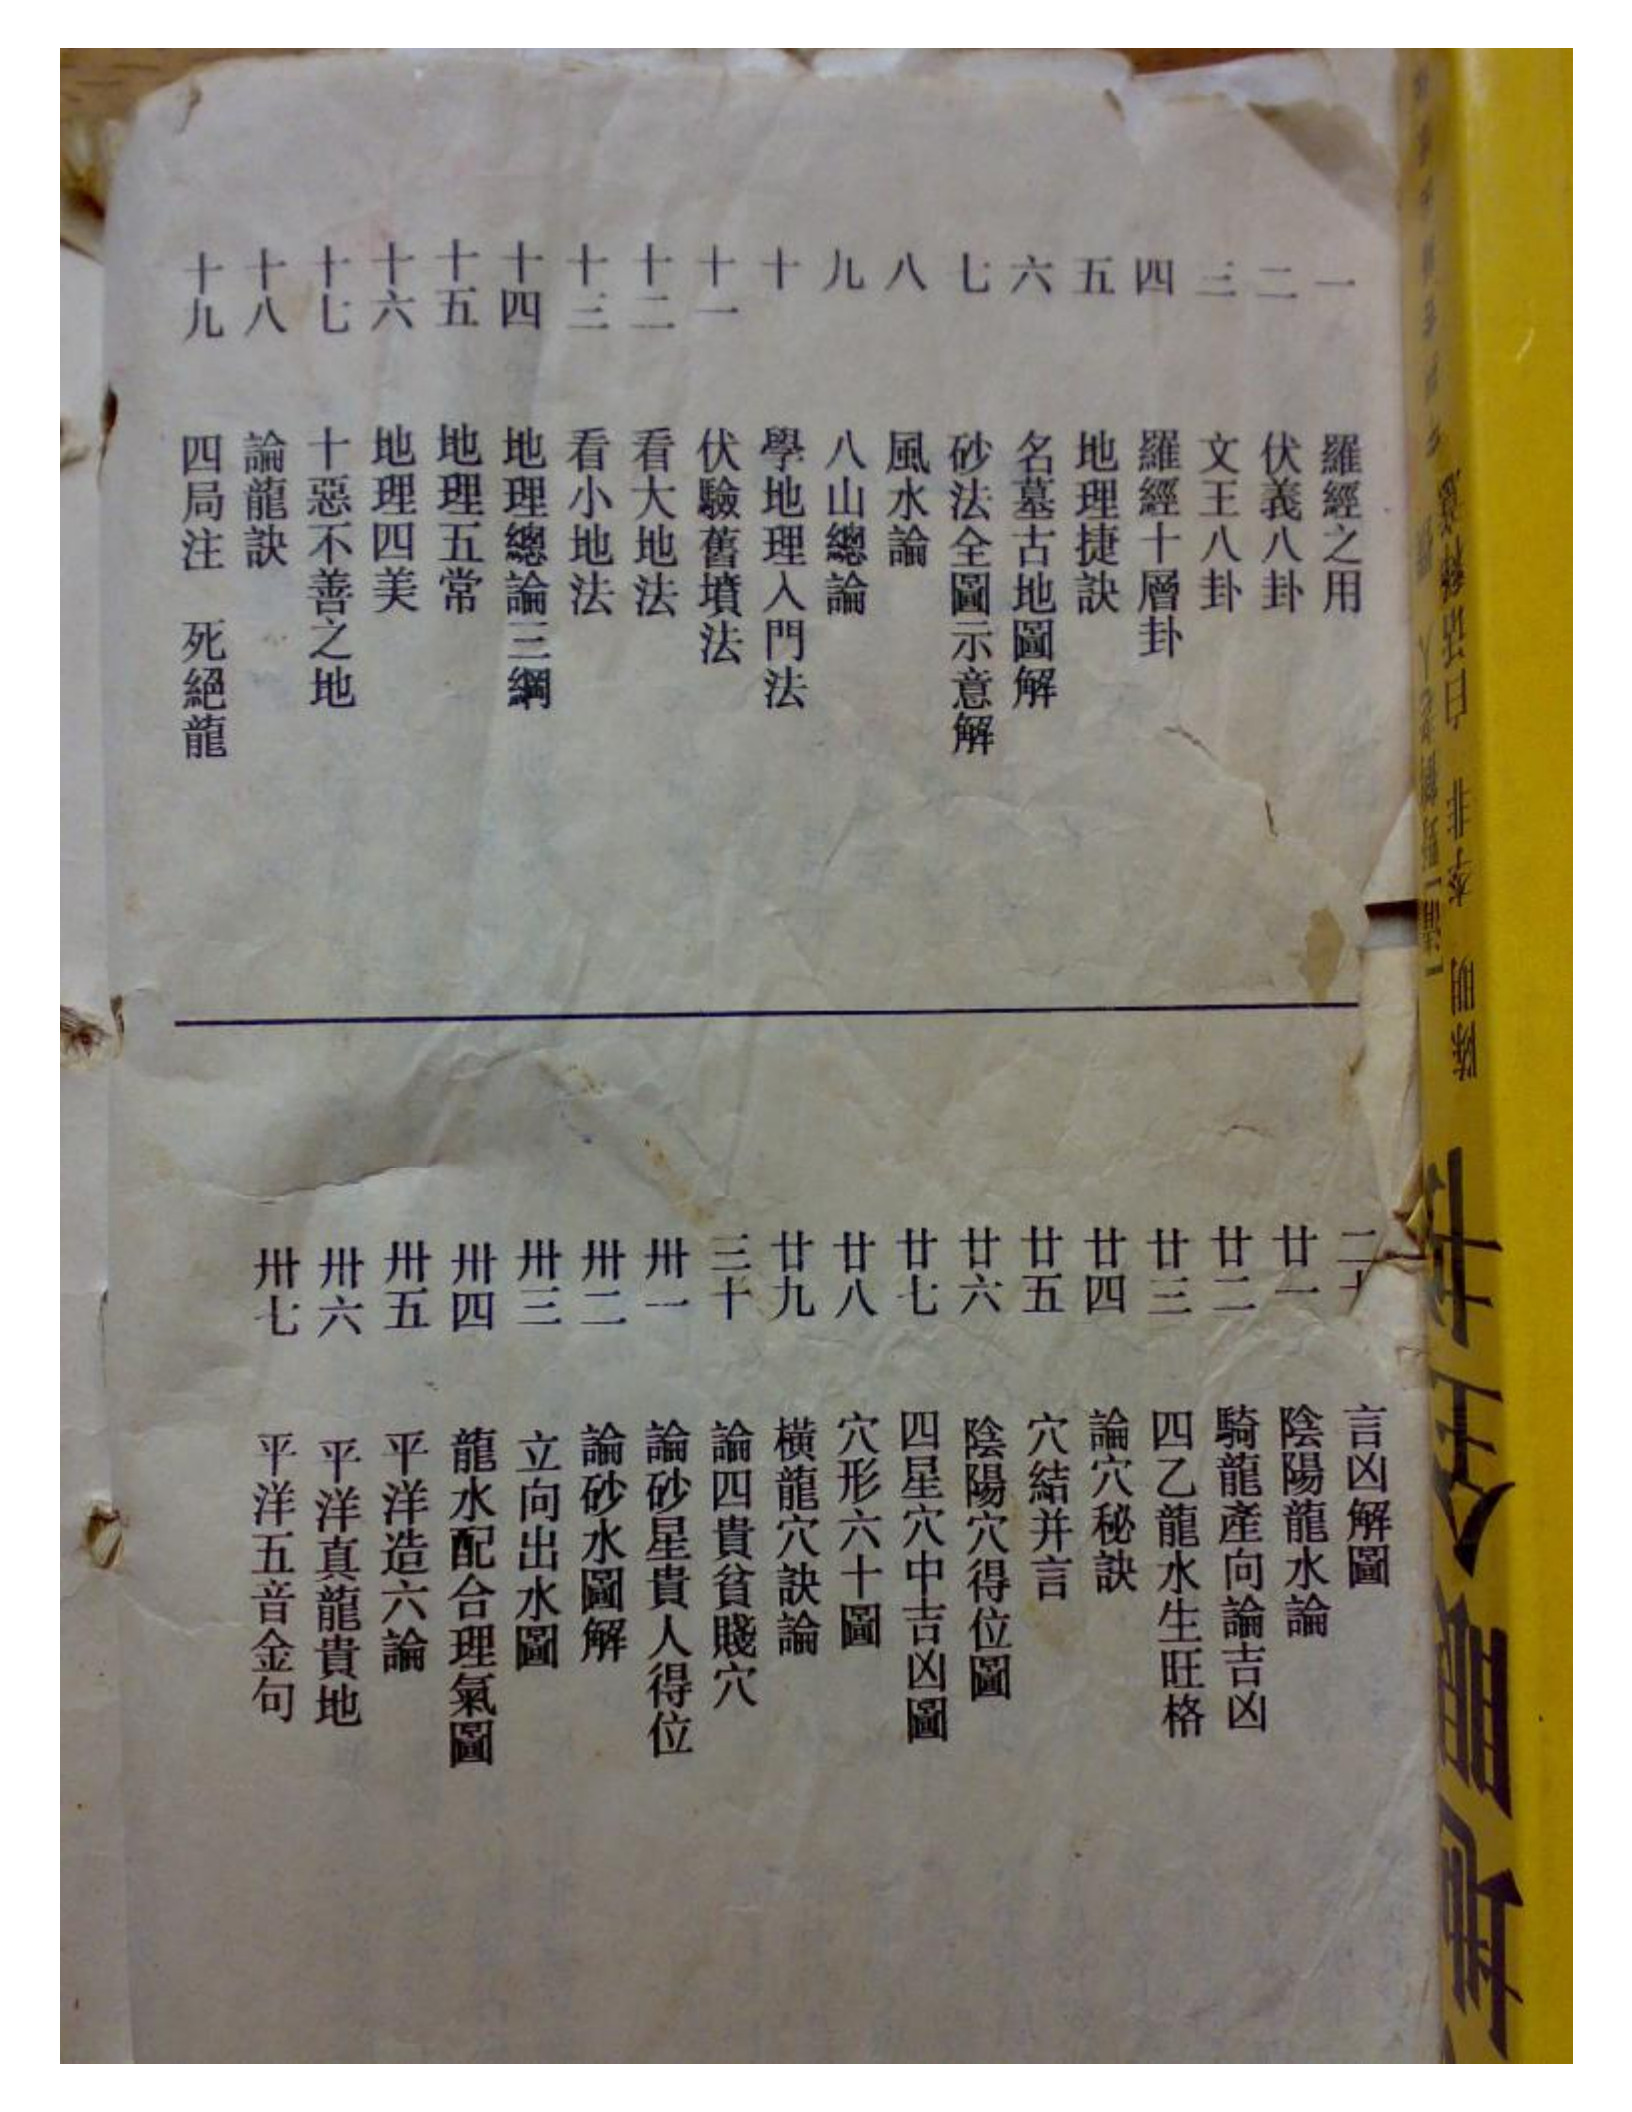 一 羅經之用
二 伏義八卦
三 文王八卦
四 羅經十層卦
五 地理捷訣
六 名墓古地圖解
七 砂法全圖示意解
八 風水論
九 八山總論
十 學地理入門法
十一 伏驗舊墳法
十二 看大地法
十三 看小地法
十四 地理總論三綱
十五 地理五常
十六 地理四美
十七 十惡不善之地
十八 論龍訣
十九 四局注 死絕龍
二十 言凶解圖
廿一 陰陽龍水論
廿二 騎龍產向論吉凶
廿三 四乙龍水生旺格
廿四 論穴秘訣
廿五 穴結并言
廿六 陰陽穴得位圖
廿七 四星穴中吉凶圖
廿八 穴形六十圖
廿九 橫龍穴訣論
三十 論四貴貧賤穴
卅一 論砂星貴人得位
卅二 論砂水圖解
卅三 立向出水圖
卅四 龍水配合理氣圖
卅五 平洋造六論
卅六 平洋真龍貴地
卅七 平洋五音金句
陈明 李非 白话释